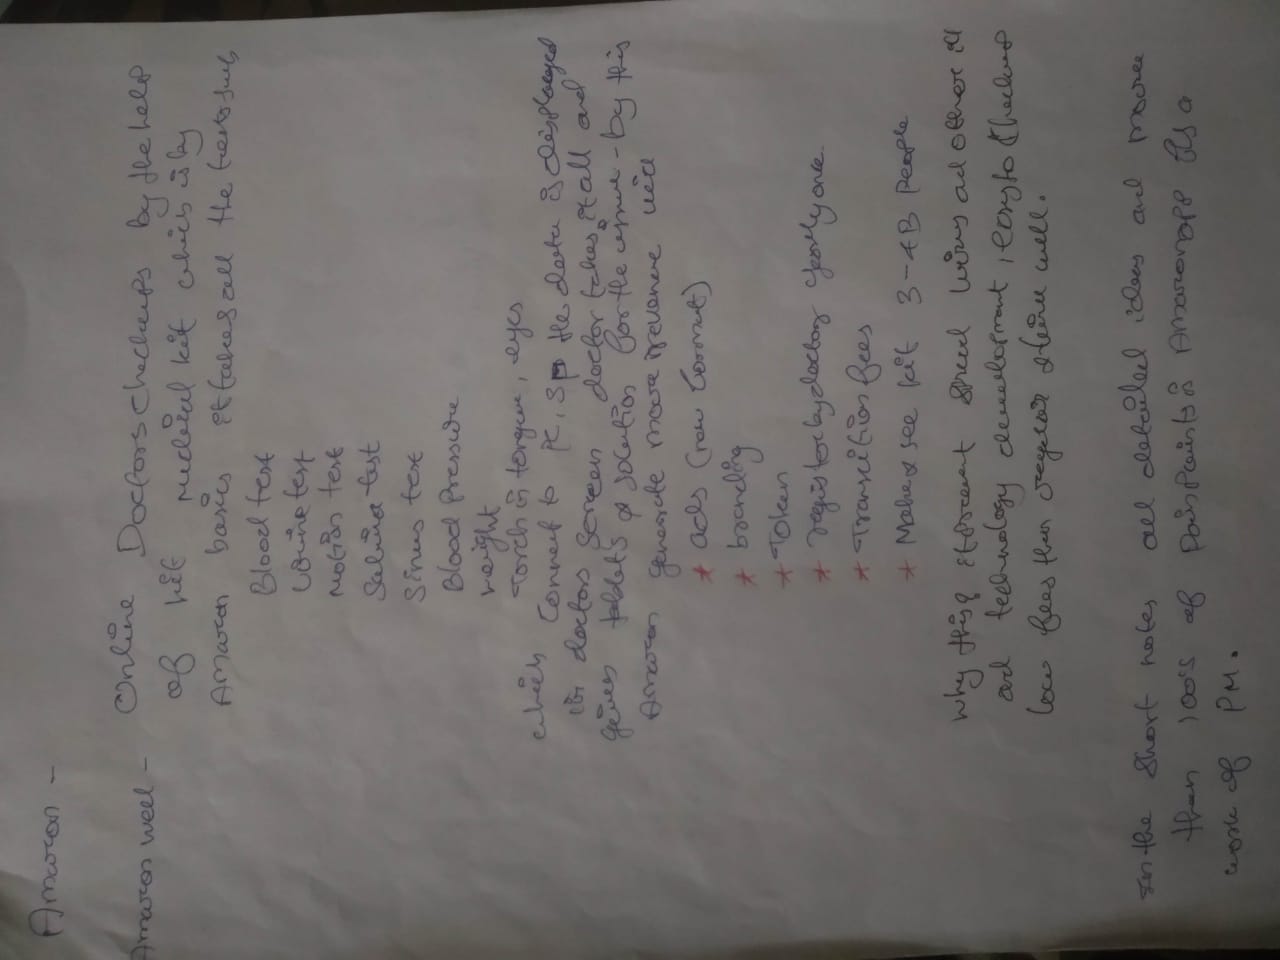 Amazon -
Amazon well - Online Doctors checkups by the help
of kit medical kit which is by
Amazon basics it takes all the tests such
Blood test
Urine test
Motion test
Saliva test
Sinus test
Blood Pressure
weight
Torch in tongue, eyes
which Connect to PC, so the data is displayed
in doctors Screen doctor takes it all and
gives tablets & solution for the same - by this
Amazon generate more revenue with
* ads (non Connect)
* branding
* Token
* register by doctor yearly once
* Transition fees
* Make & see kit 3-4B People
Why this? internet speed using ad other all
and technology development, easy to checkup
low fees than regular
In the short notes all detailed ideas and more
than 100's of Painpoints in Amazon app its a
work of PM.